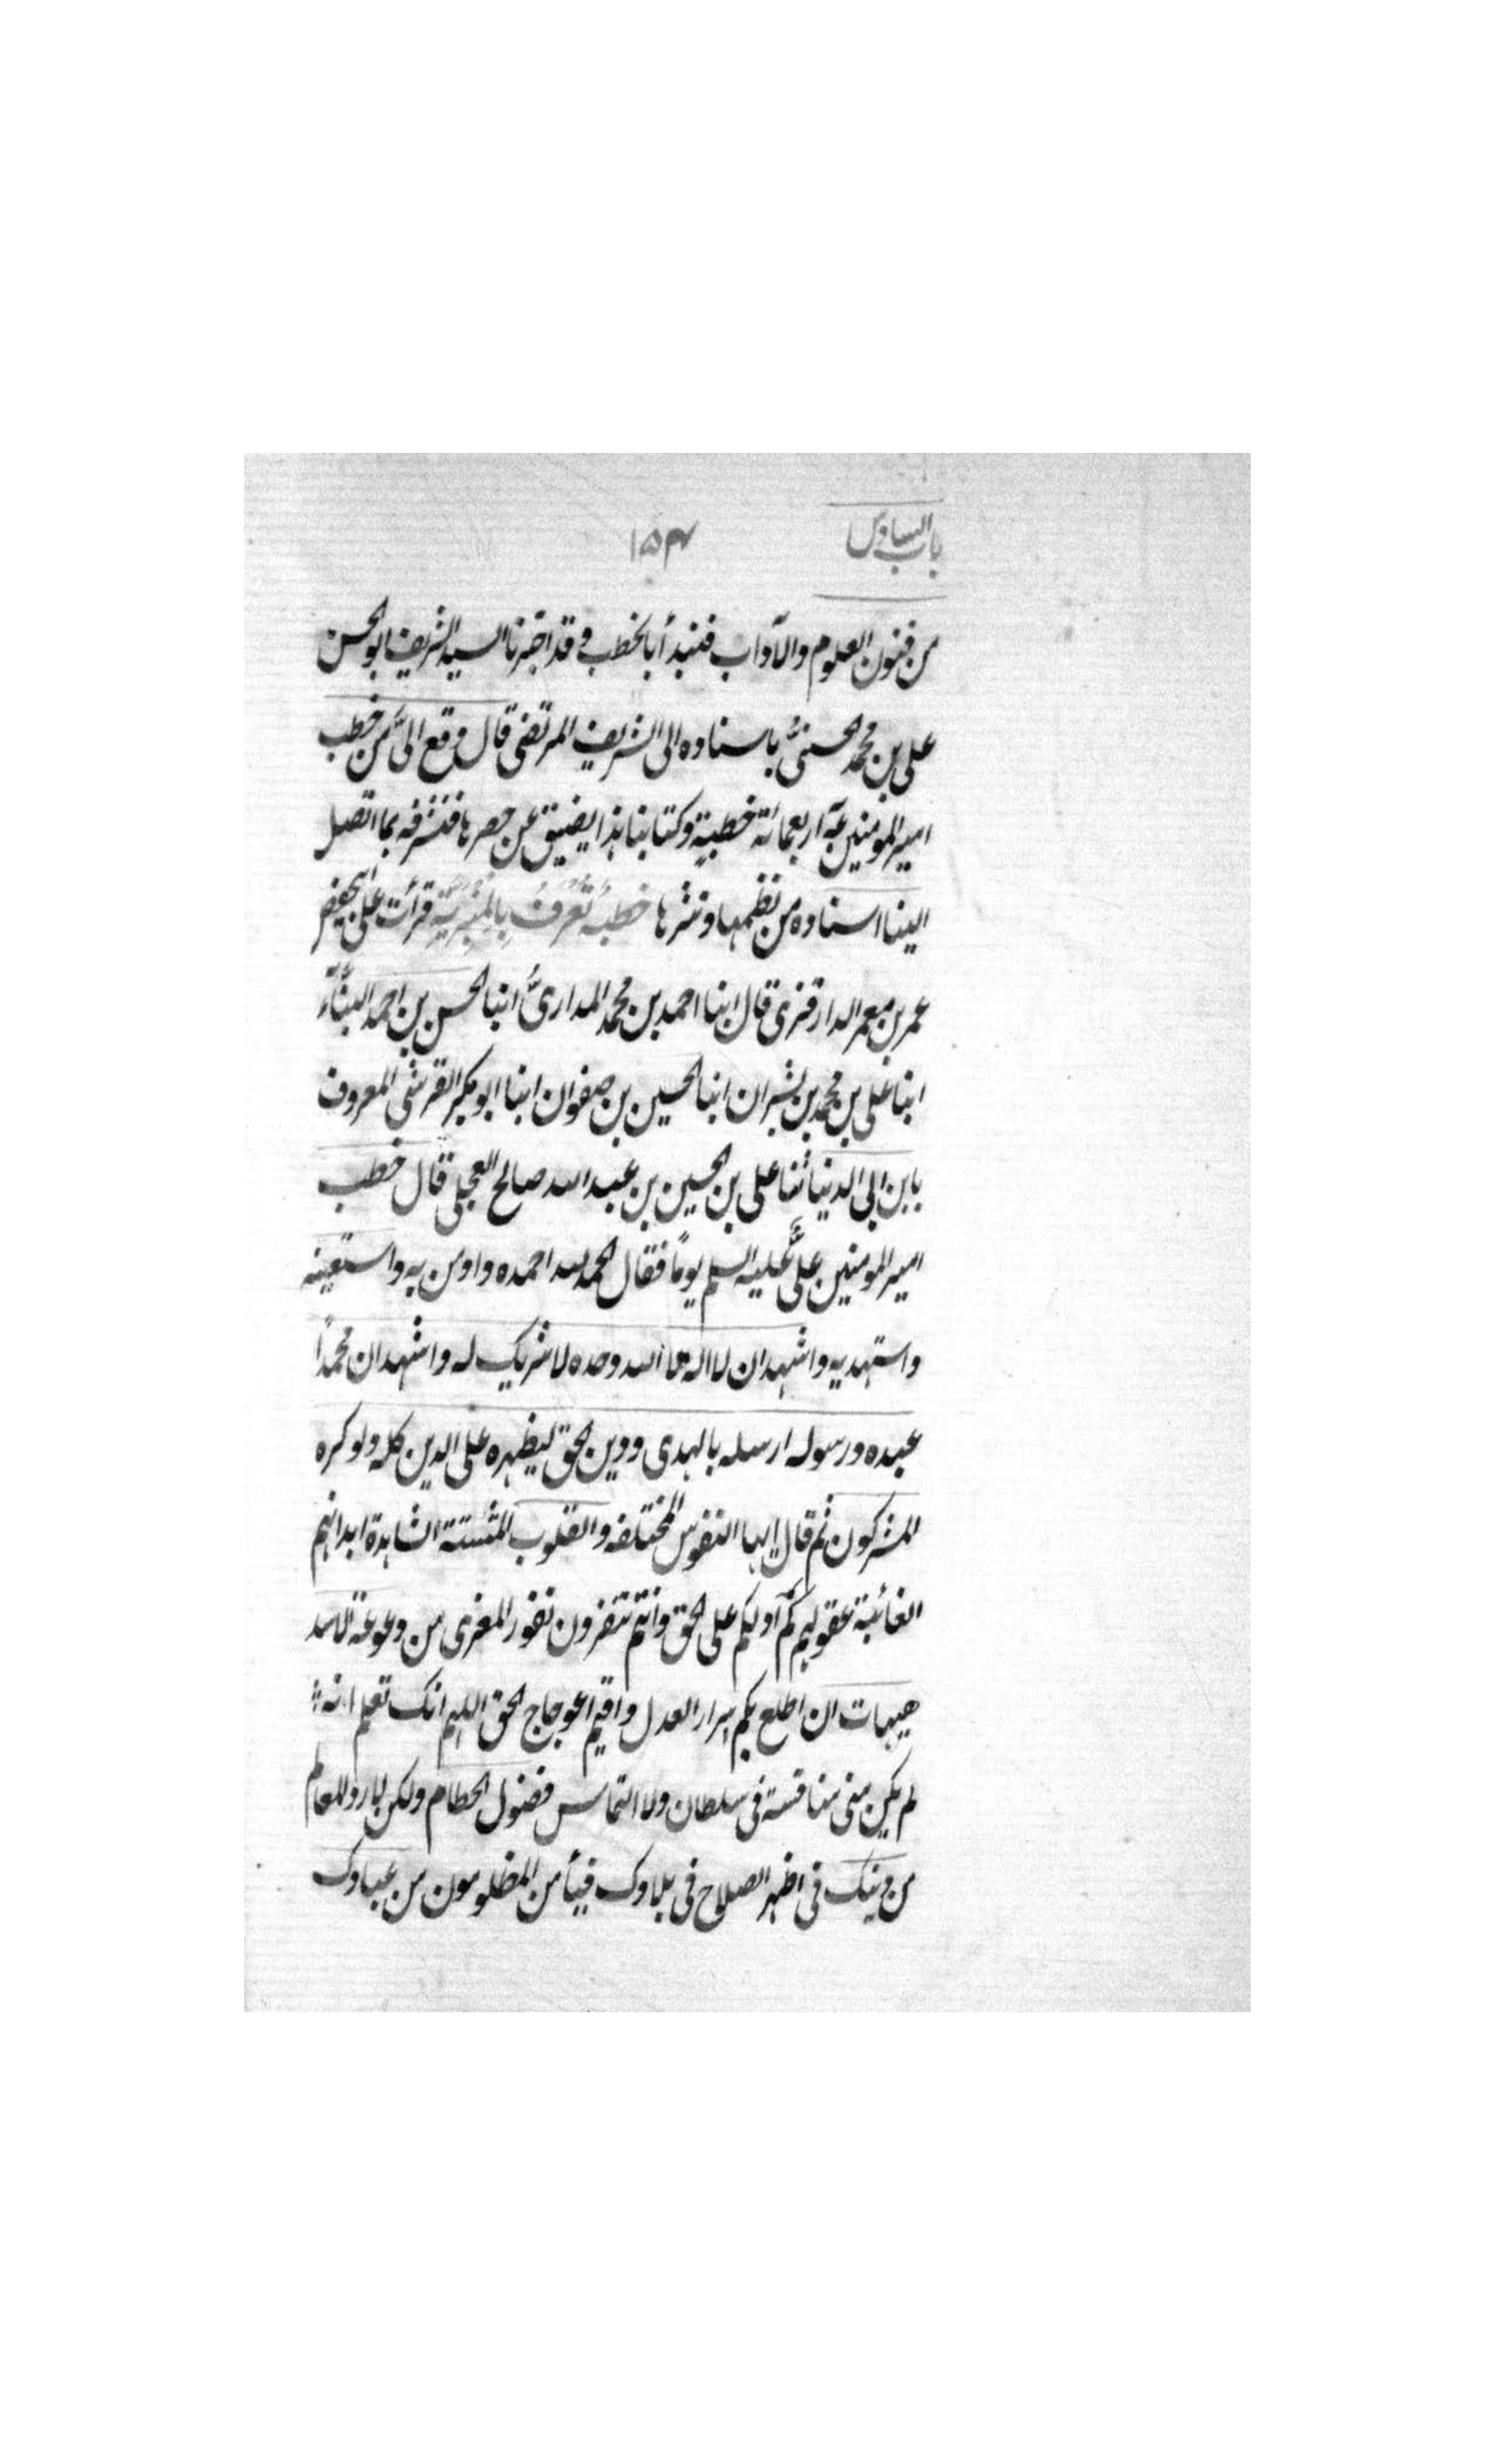 باب السادس ١٥٤
من فنون العلوم والآداب فنبدأ بالخطب و قد اخبرنا السيد الشريف ابو الحسن
علي بن محمد الحسنيُّ باسناده الى الشريف المرتضى قال وقع اليَّ من خطب
امير المؤمنين عه اربعمائة خطبةٍ وكتابنا هذا يضيق عن حصرها فنشرفه بما اتصل
الينا اسناده من نظمها ونثرها خطبةٌ تُعْرَفُ بِالْمِنْبَرِيَّةِ قرأت على ابي حفص
عمر بن معمر الدارقزى قال ابنا احمد بن محمد المدارىُّ ابنا الحسن بن احمد البنّاء
ابنا على بن محمد بن بشران ابنا الحسين بن صفوان ابنا ابو بكر القرشى المعروف
بابن ابى الدنيا ثنا على بن الحسين بن عبد الله صالح العجلى قال خطب
امير المومنين علىٌّ عليه السلم يوماً فقال الحمد لله احمده واومن به واستعينه
واستهديه واشهد ان لا اله الا الله وحده لا شريك له واشهد ان محمداً
عبده ورسوله ارسله بالهدى ودين الحق ليظهره على الدين كله ولو كره
المشركون ثم قال ايها النفوس المختلفه والقلوب المتشتتة الشاهدة ابدانهم
الغائبة عقولهم كم ادلكم على الحق وانتم تنفرون نفور المعزى من وعوعة الاسد
هيهات ان اطلع بكم اسرار العدل واقيم اعوجاج الحق اللهم انك تعلم انه
لم يكن منى منافسة فى سلطان ولا التماس فضول الحطام ولكن لارد المعالم
من دينك فى اظهر الصلاح فى بلادك فيأمن المظلومون من عبادك